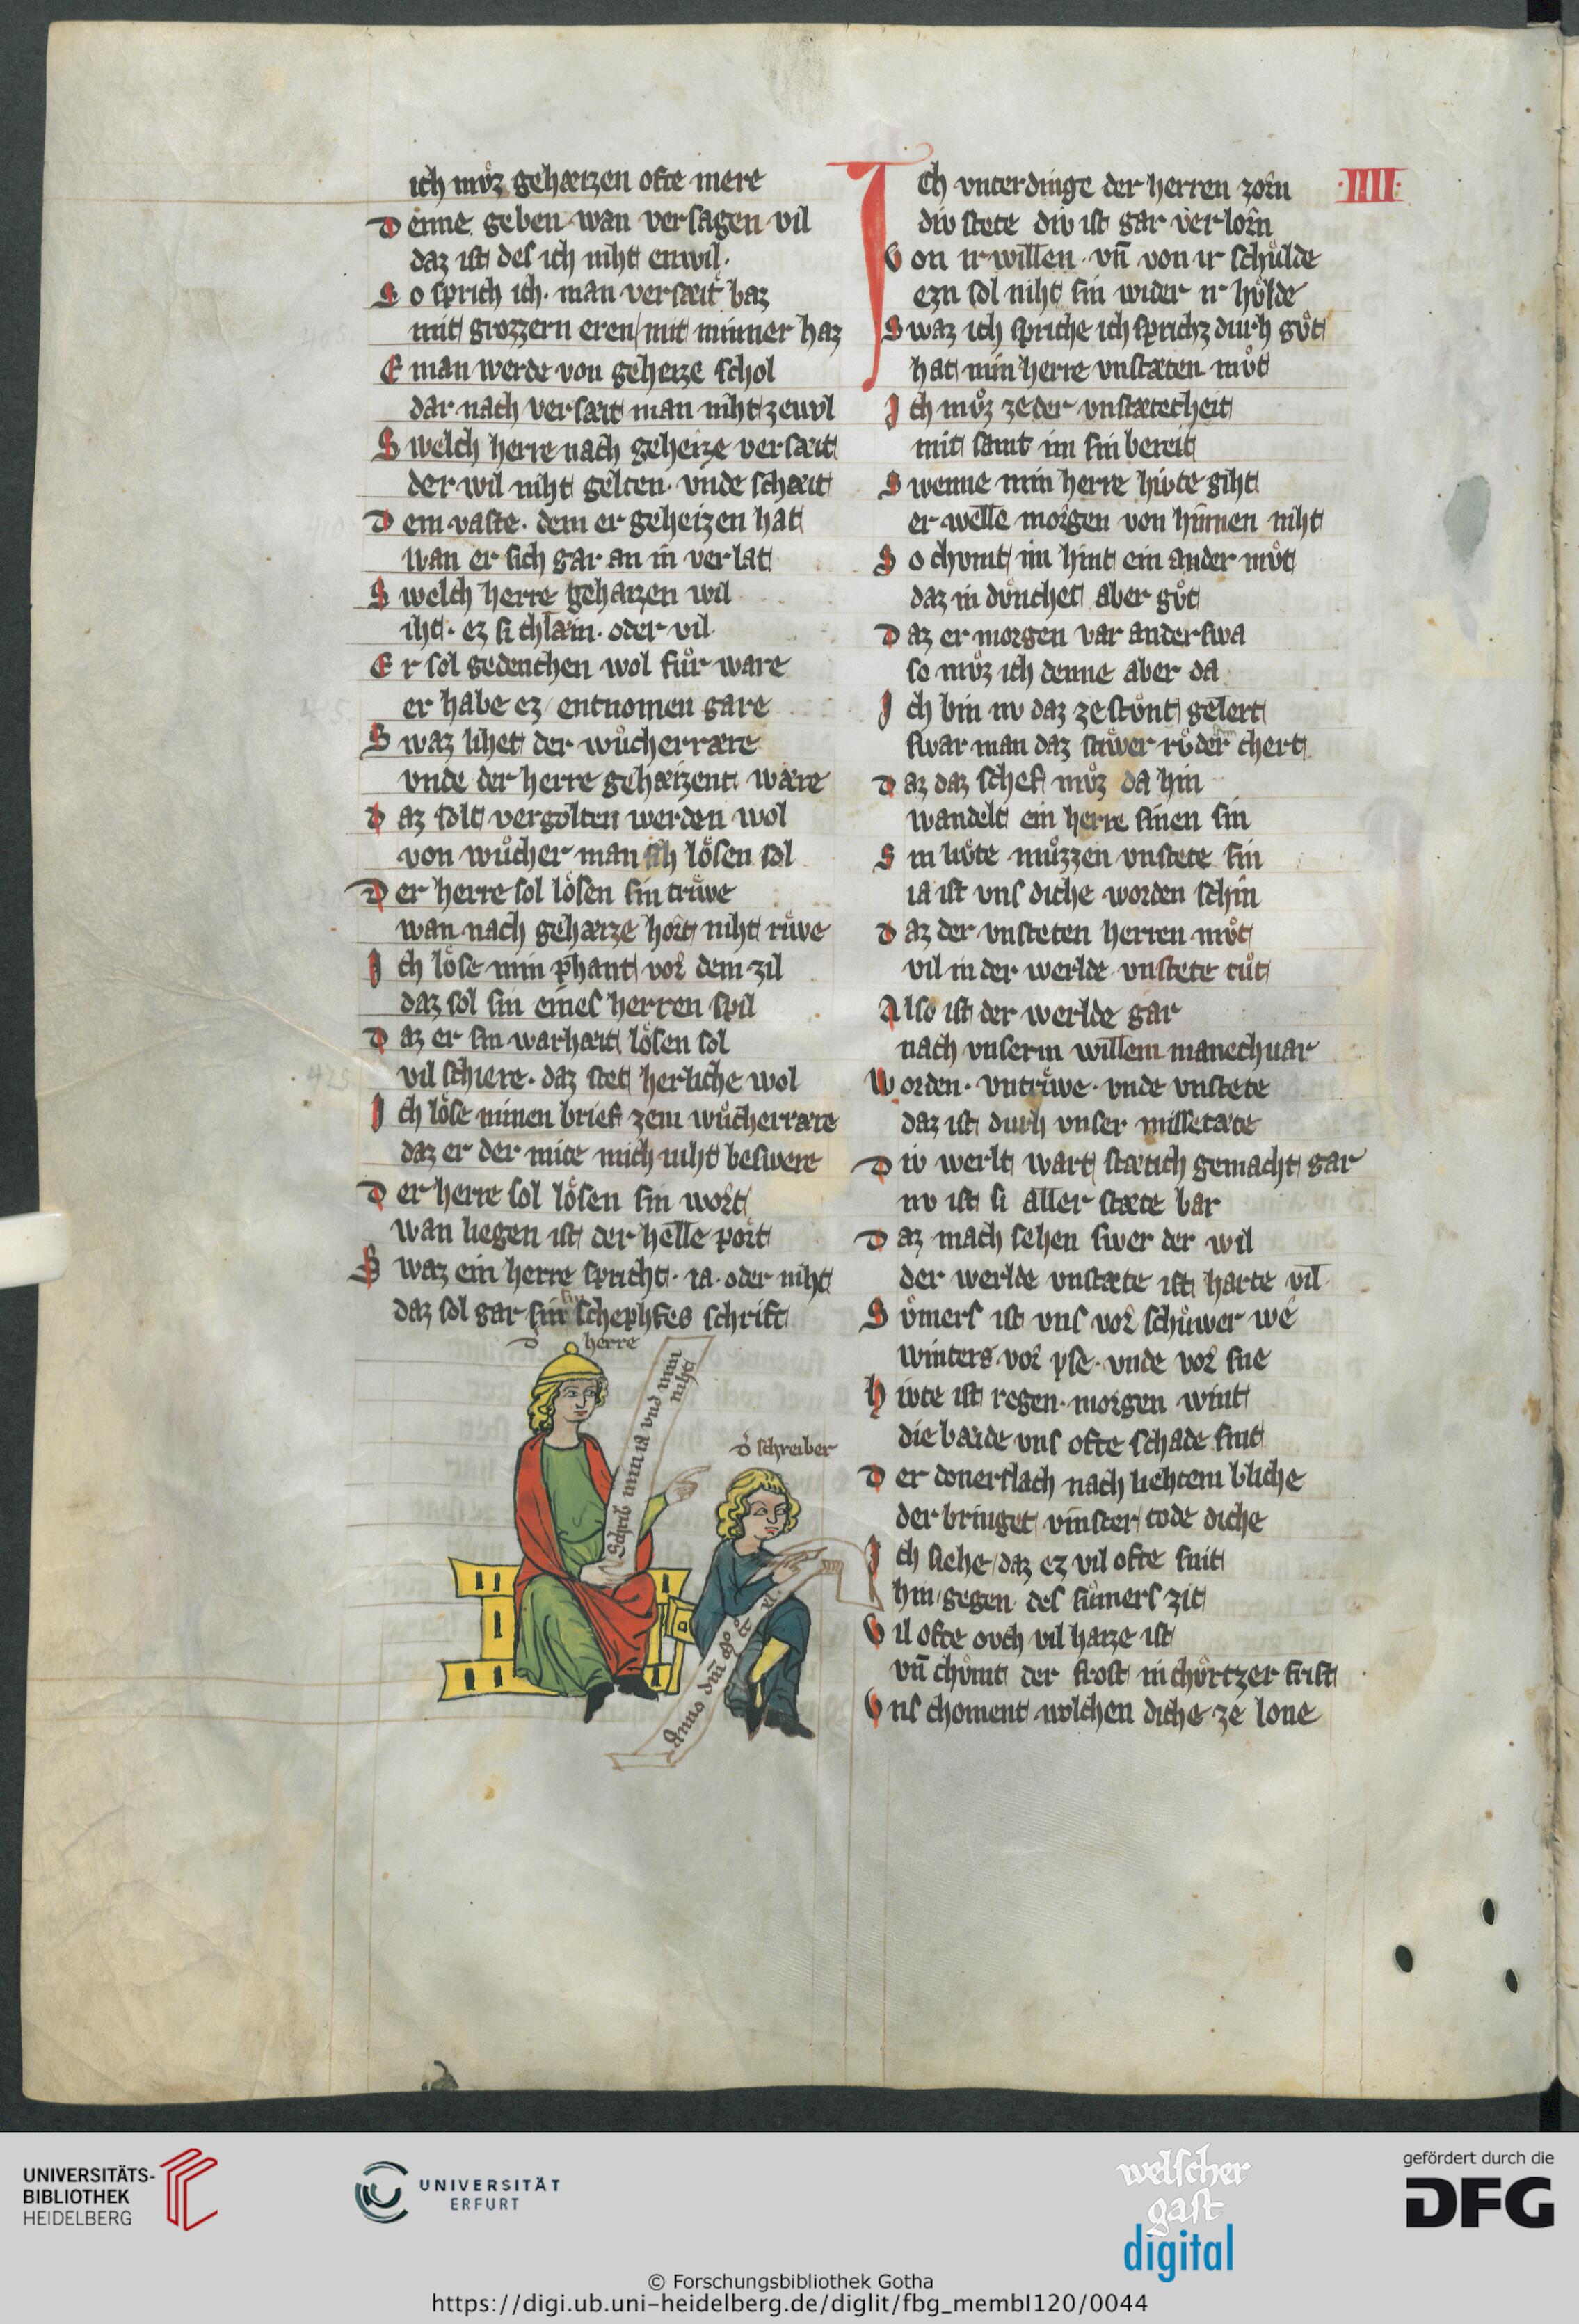 ich mvͦz gehæizen ofte mere
Denne geben wan verſagen vil
daz iſt deſ ich niht enwil·
So ſprich ich· man verſæit baz
mit grozzern eren mit minner haz
E man werde von geheize ſchol
dar nach verſæit man niht ze wol
Swelch herre nach geheize verſæit
der wil niht gelten· vnde ſchæit
Dem vaſte· dem er geheizen hat
wan er ſich gar an in verlat
Swelch herre gehæizen wil
iht· ez ſi chlæin· oder vil·
Er ſol gedenchen wol fuͤr ware
er habe ez entnomen gare
Swaz lihet der wuͦcherrære
vnde der herre gehæizent wære
daz ſolt vergolten werden wol
von wuͦcher man ſih loͤſen ſol
Der herre ſol loͤſen ſin truͤwe
wan nach gehæize hort niht ruͤwe
Ich loͤſe min phant vor dem zil
daz ſol ſin eineſ herren ſpil
Daz er ſin warhæit loͤſen ſol
vil ſchiere· daz ſtet herliche wol
Ich loͤſe minen brief zem wuͦcherrære
daz er der mite mich niht beſwere
Der herre ſol loͤſen ſin wort
wan liegen iſt der helle port
Swaz ein herre ſpricht· ia· oder niht
daz ſol gar ſin ſchephfes ſchrift
d̕ herre
Schrib min ia vnd min
niht
d̕ ſchreiber
Anno dm̄
·IIII·
Ich vnterdinge der herren zorn
div ſtete div iſt gar verlorn
Von ir willen· vn̄ von ir ſchulde
ezn ſol niht ſin wider ir hulde
Swaz ich ſpriche ich ſprichz durh gvͦt
hat min herre vnſtæten mvͦt
Ich mvͦz ze der vnſtætecheit
mit ſamt im ſin bereit
Swenne min herre hivte giht
er welle morgen von hinnen niht
So chvmt im hint ein ander mvͦt
daz in dvnchet aber gvͦt
Daz er morgen var anderſwa
ſo mvͦz ich denne aber da
Ich bin nv daz ze ſtvnt gelert
ſwar man daz ſtiwer rvͦder chert
Daz daz ſchef mvͦz da hin
wandelt ein herre ſinen ſin
Sin livte muͤzzen vnſtete ſin
ia iſt vnſ diche worden ſchin
daz der vnſteten herren mvͦt
vil in der werlde vnſtete tuͦt
Alſo iſt der werlde gar
nach vnſerm willem manechuar
Worden· vntruͤwe· vnde vnſtete
daz iſt durh vnſer miſſetæte
Div werlt wart ſtætich gemacht gar
nv iſt ſi aller ſtæte bar
Daz mach ſehen ſwer der wil
der werlde vnſtæte iſt harte vil
Svmerſ iſt vnſ vor ſchuwer we
winters vor yſe· vnde vor ſne
hivte iſt regen· morgen wint
die bæide vnſ ofte ſchade ſint
Der donerſlach nach liehtem bliche
der bringet vinſter tode diche
Ich ſiehe daz ez vil ofte ſnit
hin gegen deſ ſumerſ zit
Vil ofte ovch vil hæize iſt
vn̄ chvmt der froſt in chvrtzer friſt
Vnſ choment wolchen diche ze lone
UNIVERSITÄTS-
BIBLIOTHEK
HEIDELBERG
UNIVERSITÄT
ERFURT
welſcher
gaſt
digital
gefördert durch die
DFG
© Forschungsbibliothek Gotha
https://digi.ub.uni-heidelberg.de/diglit/fbg_membI120/0044